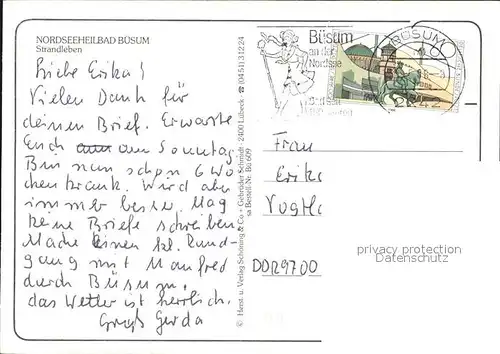 NORDSEEHEILBAD BÜSUM
Strandleben
Liebe Erika!
Vielen Dank für
deinen Brief. Erwarte
Euch am Sonntag
Bin nun schon 6 Wo
chen krank. Wird aber
immer besser. Mag
keine Briefe schreiben
Mache einen kl. Rund-
gang mit Manfred
durch Büsum,
das Wetter ist herrlich.
Gruß Gerda
© Herst. u. Verlag Schöning & Co + Gebrüder Schmidt · 2400 Lübeck ☎ (0451) 3 12 24
sa Bestell-Nr. Bü 609
Büsum
an der
Nordsee
BÜSUM
2242
Frau
Erika
Vogtl
DDR9700
privacy protection
Datenschutz